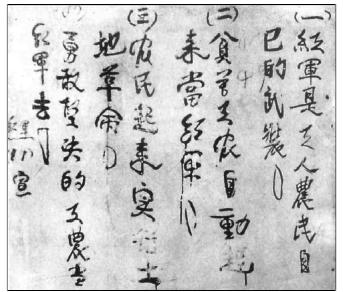 (一)紅軍是工人農民自
己的武裝
(二)貧苦工农自動起
来當紅軍
(三)农民起来实行土
地革命
勇敢坚决的工農去
紅軍去
宣